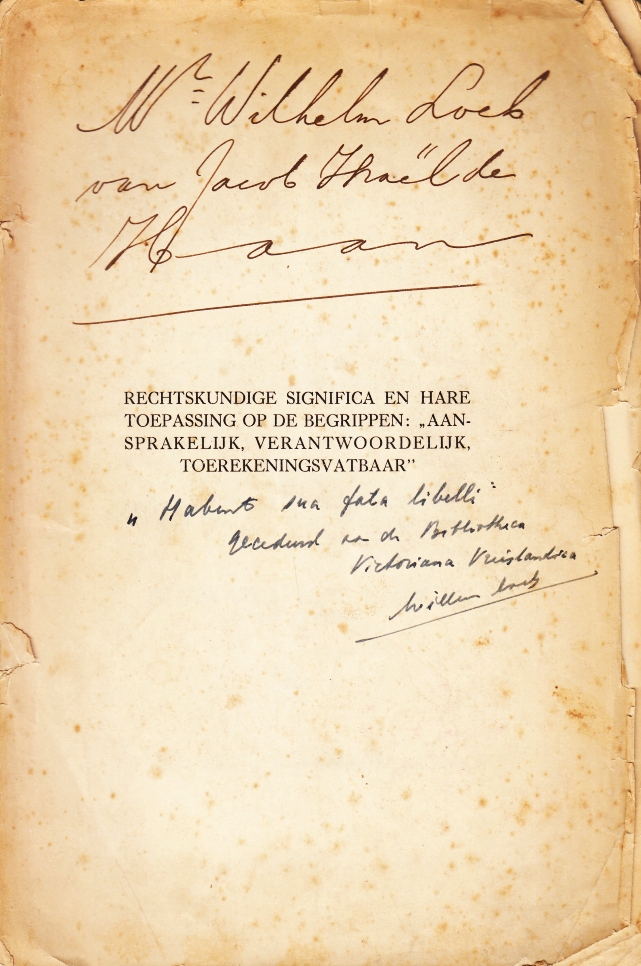 Mr= Wilhelm Loeb
van Jacob Israël de
Haan
RECHTSKUNDIGE SIGNIFICA EN HARE
TOEPASSING OP DE BEGRIPPEN: „AAN-
SPRAKELIJK, VERANTWOORDELIJK,
TOEREKENINGSVATBAAR”
„Habent sua fata libelli"
gecedeerd aan de Bibliotheca
Victoriana Vrieslandica
Willem Loeb